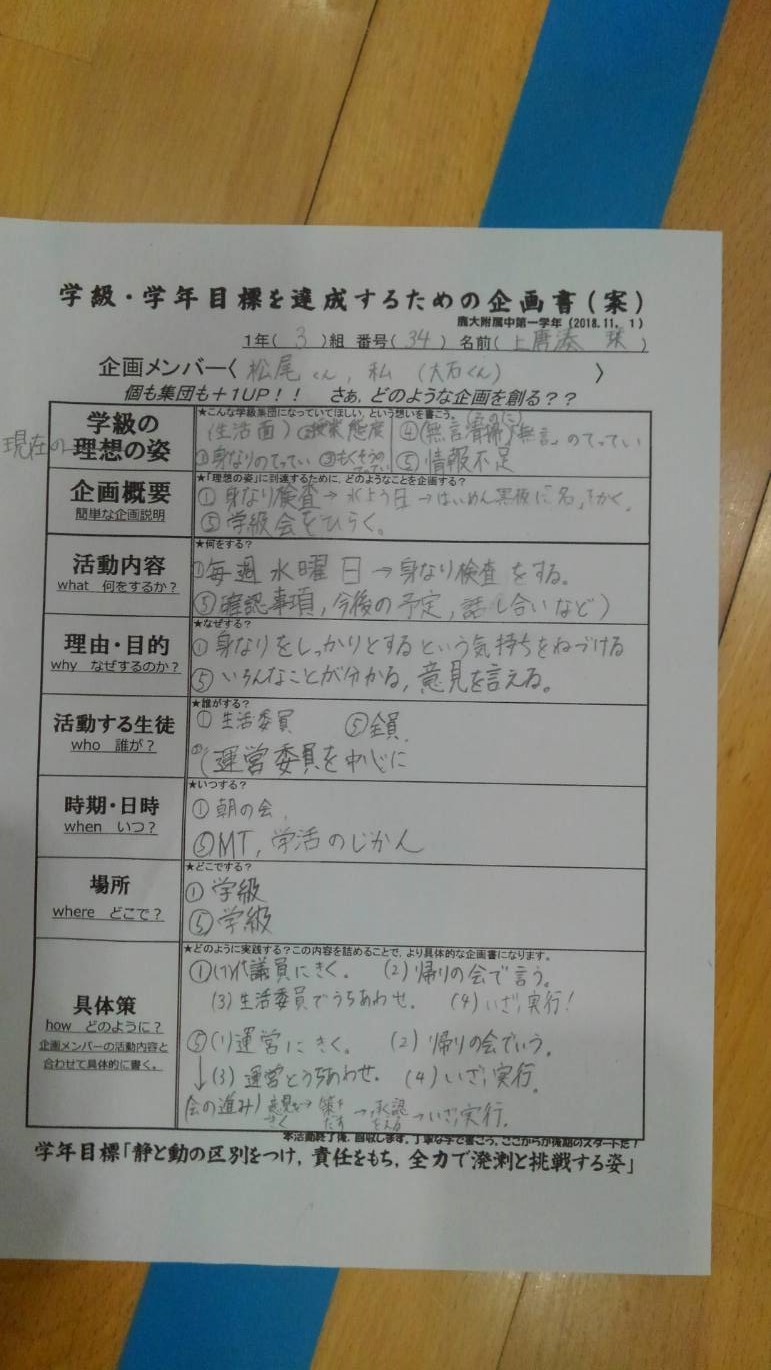 学級・学年目標を達成するための企画書(案)
鹿大附属中第一学年(2018.11. 1)
1年( 3 )組 番号( 34 ) 名前( )
企画メンバー〈 松尾くん, 私 (大石くん) 〉
個も集団も+1UP!! さぁ,どのような企画を創る??
現在の
学級の
理想の姿
★こんな学級集団になっていてほしい,という想いを書こう。
(生活面) ②授業態度 ④(無言清掃)「無言」のてってい
①身なりのてってい ⑤情報不足
企画概要
簡単な企画説明
★「理想の姿」に到達するために,どのようなことを企画する?
①身なり検査→水よう日→はいめん黒板に「名」をかく。
⑤学級会をひらく。
活動内容
what 何をするか?
★何をする?
①毎週水曜日→身なり検査をする。
⑤確認事項,今後の予定,話し合いなど)
理由・目的
why なぜするのか?
★なぜする?
①身なりをしっかりとするという気持ちをねづける
⑤いろんなことが分かる,意見を言える。
活動する生徒
who 誰が?
★誰がする?
①生活委員 ⑤全員
(運営委員を中心に
時期・日時
when いつ?
★いつする?
①朝の会,
⑤MT,学活のじかん
場所
where どこで?
★どこでする?
①学級
⑤学級
具体策
how どのように?
企画メンバーの活動内容と
合わせて具体的に書く。
★どのように実践する?この内容を詰めることで,より具体的な企画書になります。
①(1)代議員にきく。 (2)帰りの会で言う。
(3)生活委員でうちあわせ。 (4)いざ,実行!
⑤(1)運営にきく。 (2)帰りの会でいう。
↓(3)運営とうちあわせ。 (4)いざ,実行。
会の進み)意見をきく→策をだす→承認をえる→いざ,実行。
本活動終了後,回収します。丁寧な字で書こう。ここからが後期のスタートだ!
学年目標「静と動の区別をつけ,責任をもち,全力で溌溂と挑戦する姿」